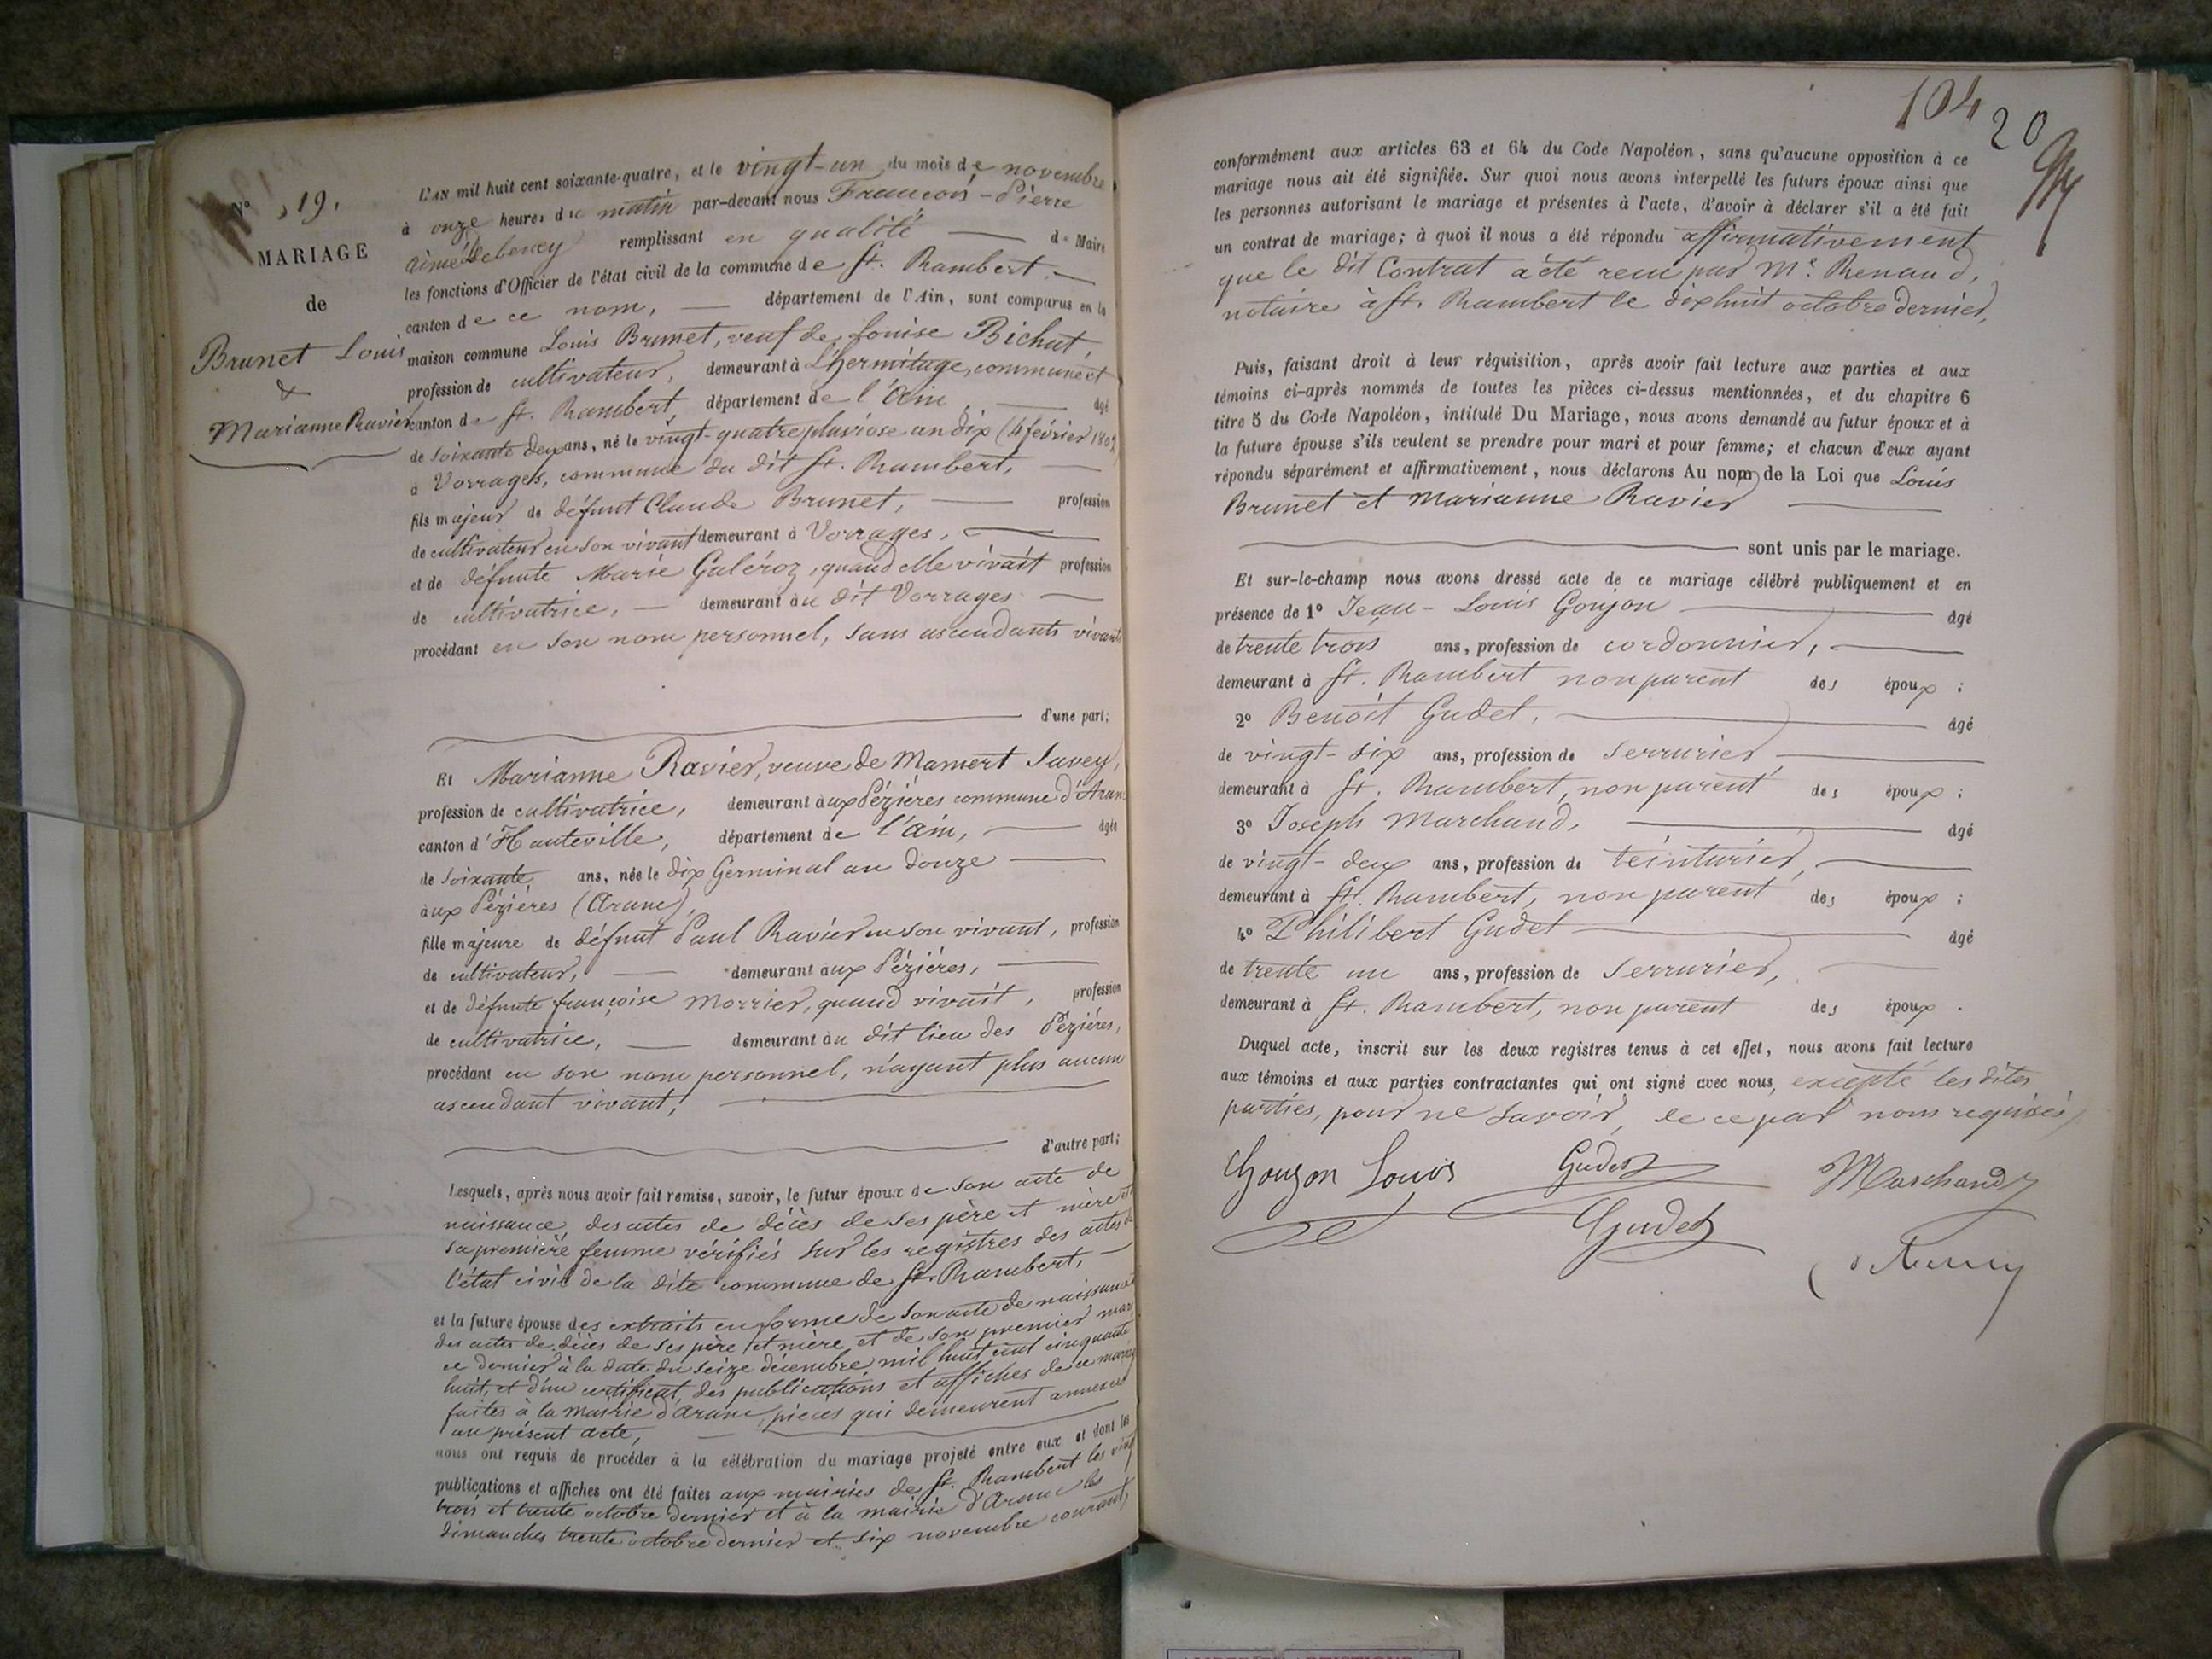 N° 19.
MARIAGE
de
Brunet Louis
&
Marianne Ravier
L'AN mil huit cent soixante-quatre, et le vingt-un du mois de novembre
à onze heures du matin par-devant nous François-Pierre
aimé Debeney remplissant en qualité de Maire
les fonctions d'Officier de l'état civil de la commune de St. Rambert
canton de ce nom, département de l'Ain, sont comparus en la
maison commune Louis Brunet, veuf de Louise Bichat,
profession de cultivateur, demeurant à L'hermitage, commune et
canton de St. Rambert, département de l'Ain âgé
de soixante deux ans, né le vingt-quatre pluviose an dix (4 février 1802)
à Vorrages, commune du dit St. Rambert,
fils majeur de défunt Claude Brunet, profession
de cultivateur en son vivant demeurant à Vorrages,
et de défunte Marie Galéroz, quand elle vivait profession
de cultivatrice, demeurant au dit Vorrages
procédant en son nom personnel, sans ascendants vivants
d'une part;
Et Marianne Ravier, veuve de Mamert Savey,
profession de cultivatrice, demeurant aux Pézières commune d'Aranc
canton d'Hauteville, département de l'Ain, âgée
de soixante ans, née le dix Germinal an douze
aux Pézières (Aranc),
fille majeure de défunt Paul Ravier en son vivant, profession
de cultivateur, demeurant aux Pézières,
et de défunte françoise Morrier, quand vivait, profession
de cultivatrice, demeurant au dit lieu des Pézières,
procédant en son nom personnel, n'ayant plus aucun
ascendant vivant,
d'autre part;
Lesquels, après nous avoir fait remise, savoir, le futur époux de son acte de
naissance des actes de décès de ses père et mère et
sa première femme vérifiés sur les registres des actes de
l'état civil de la dite commune de St. Rambert,
et la future épouse des extraits en forme de son acte de naissance
des actes de décès de ses père et mère et de son premier mari
ce dernier à la date du seize décembre mil huit cent cinquante
huit, et d'un certificat des publications et affiches de ce mariage
faites à la mairie d'Aranc, pièces qui demeurent annexées
au présent acte,
nous ont requis de procéder à la célébration du mariage projeté entre eux et dont les
publications et affiches ont été faites aux mairies de St. Rambert les vingt
trois et trente octobre dernier et à la mairie d'Aranc les
dimanches trente octobre dernier et six novembre courant,
104
20
conformément aux articles 63 et 64 du Code Napoléon, sans qu'aucune opposition à ce
mariage nous ait été signifiée. Sur quoi nous avons interpellé les futurs époux ainsi que
les personnes autorisant le mariage et présentes à l'acte, d'avoir à déclarer s'il a été fait
un contrat de mariage; à quoi il nous a été répondu affirmativement
que le dit Contrat a été reçu par Me. Renaud,
notaire à St. Rambert le dix huit octobre dernier,
Puis, faisant droit à leur réquisition, après avoir fait lecture aux parties et aux
témoins ci-après nommés de toutes les pièces ci-dessus mentionnées, et du chapitre 6
titre 5 du Code Napoléon, intitulé Du Mariage, nous avons demandé au futur époux et à
la future épouse s'ils veulent se prendre pour mari et pour femme; et chacun d'eux ayant
répondu séparément et affirmativement, nous déclarons Au nom de la Loi que Louis
Brunet et Marianne Ravier
sont unis par le mariage.
Et sur-le-champ nous avons dressé acte de ce mariage célébré publiquement et en
présence de 1° Jean-Louis Goujon âgé
de trente trois ans, profession de cordonnier,
demeurant à St. Rambert non parent des époux;
2° Benoit Gudet, âgé
de vingt-six ans, profession de serrurier
demeurant à St. Rambert, non parent des époux;
3° Joseph Marchand, âgé
de vingt-deux ans, profession de teinturier,
demeurant à St. Rambert, non parent des époux;
4° Philibert Gudet âgé
de trente un ans, profession de serrurier,
demeurant à St. Rambert, non parent des époux.
Duquel acte, inscrit sur les deux registres tenus à cet effet, nous avons fait lecture
aux témoins et aux parties contractantes qui ont signé avec nous, excepté les dites
parties, pour ne savoir, de ce par nous requises
Goujon Louis
Gudet
Marchand
Gudet